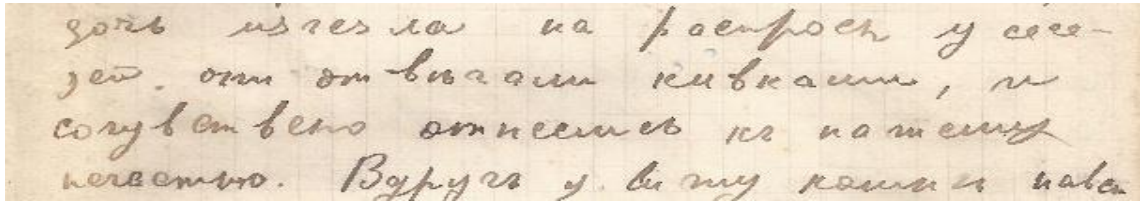 дочь изчезла на распросы у сосе-
дей. они отвѣчали кивками, и
сочувствено отнеслись къ нашему
несчастью. Вдругъ у вижу